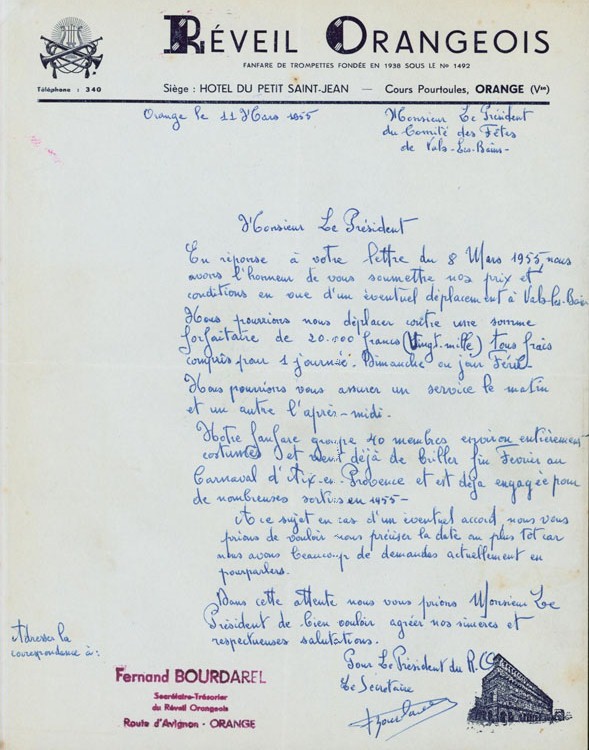 RÉVEIL ORANGEOIS
FANFARE DE TROMPETTES FONDÉE EN 1938 SOUS LE No 1492
Téléphone : 340
Siège : HOTEL DU PETIT SAINT-JEAN — Cours Pourtoules, ORANGE (Vse)
Orange le 11 Mars 1955
Monsieur Le Président
du Comité des Fêtes
de Vals-les-Bains-
Monsieur Le Président
En réponse à votre lettre du 8 Mars 1955, nous
avons l'honneur de vous soumettre nos prix et
conditions en vue d'un éventuel déplacement à Vals-les-Bains
Nous pourrions nous déplacer contre une somme
forfaitaire de 20.000 francs (Vingt-mille) tous frais
compris pour 1 journée. Dimanche ou jour Férié-
Nous pourrions vous assurer un service le matin
et un autre l'après-midi.
Notre fanfare groupe 40 membres environ entièrement
costumés et vient déjà de briller fin Fevrier au
Carnaval d'Aix-en-Provence et est déja engagée pour
de nombreuses sorties en 1955-
A ce sujet en cas d'un éventuel accord, nous vous
prions de vouloir nous préciser la date au plus tôt car
nous avons beaucoup de demandes actuellement en
pourparlers.
Dans cette attente nous vous prions Monsieur Le
Président de bien vouloir agréer nos sincères et
respectueuses salutations.
Adresser la
correspondance à :
Pour Le Président du R.O
Le Secrétaire
Fernand BOURDAREL
Secrétaire-Trésorier
du Réveil Orangeois
Route d'Avignon - ORANGE
Bourdarel